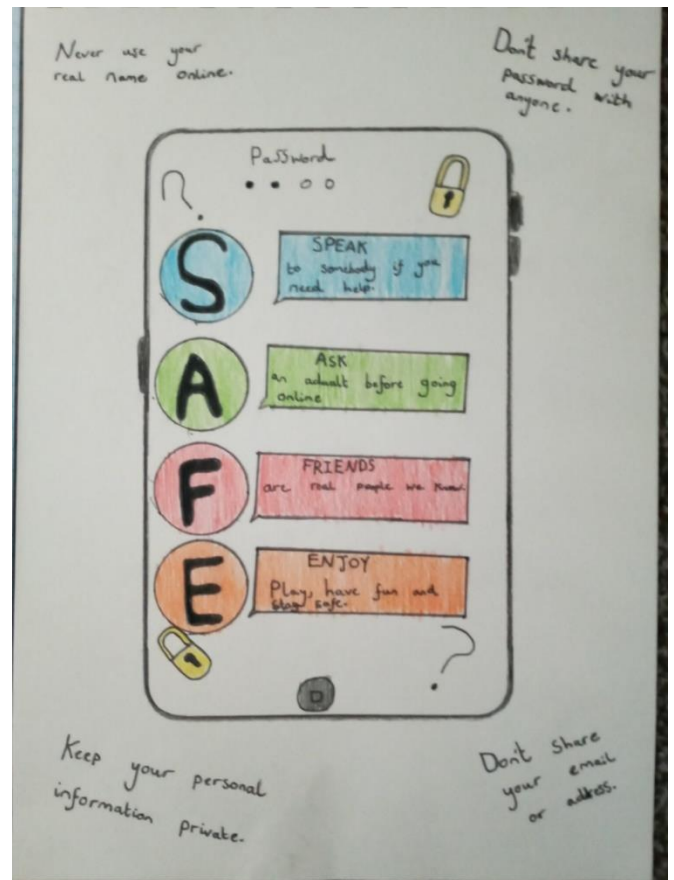 Never use your
real name online.
Don't share your
password with
anyone.
Password
S
SPEAK
to somebody if you
need help.
A
ASK
an adualt before going
online
F
FRIENDS
are real people we know
E
ENJOY
Play, have fun and
stay safe.
Keep your personal
information private.
Don't share
your email
or address.